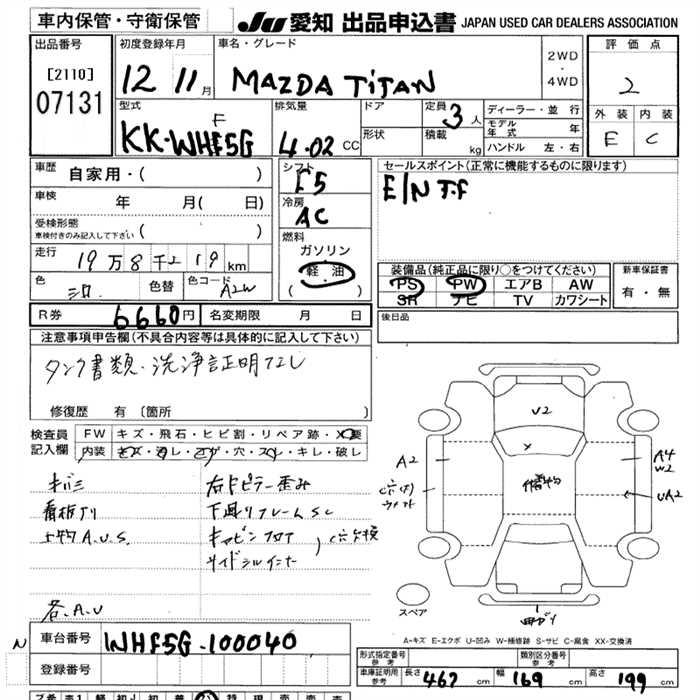 車内保管・守衛保管 JU 愛知 出品申込書 JAPAN USED CAR DEALERS ASSOCIATION
出品番号 初度登録年月 車名・グレード 評価点
[2110] 12 11月 MAZDA TITAN 2WD・4WD 2
07131
型式 排気量 ドア 定員 3人 ディーラー・並行 外装 内装
KK-WHF5G F 4.02 CC 形状 積載 kg モデル年式 年 E C
ハンドル 左・右
車歴 自家用・( ) シフト F5 セールスポイント(正常に機能するものに限ります)
車検 年 月( 日) 冷房 AC E/N
受検形態 車検付きのみ記入して下さい ( ) 燃料
走行 19万8千219km ガソリン
軽・油
( )
装備品(純正品に限り○をつけてください) 新車保証書
色 色替 色コード A2W PS PW エアB AW 有・無
SR ナビ TV カワシート
R券 6660円 名変期限 月 日 後日品
注意事項申告欄(不具合内容等は具体的に記入して下さい)
タンク書類・洗浄証明ナシ
修復歴 有 [箇所 ]
検査員 FW キズ・飛石・ヒビ割・リペア跡・X要
記入欄 内装 キズ・汚レ・コゲ・穴・スレ・キレ・破レ
キバミ 右Fピラー歪み
看板アリ 下廻りフレームSC
上物A.U.S. キャビンフロア
サイドシルインナー
各.A.U
U2
A2
A4
W2
UA2
スペア
A-キズ E-エクボ U-凹み W-補修跡 S-サビ C-腐食 XX-交換済
N 車台番号 WHF5G-100040
登録番号
形式指定番号 参考 類別区分番号 参考
車庫証明用 参考 長さ 467 cm 幅 169 cm 高さ 199 cm